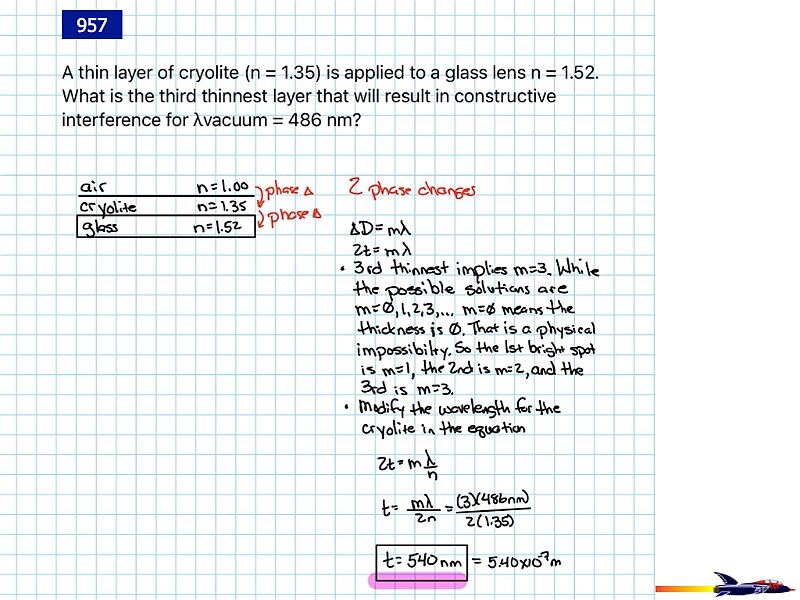 957
A thin layer of cryolite (n = 1.35) is applied to a glass lens n = 1.52.
What is the third thinnest layer that will result in constructive
interference for λvacuum = 486 nm?
air n=1.00
cryolite n=1.35
glass n=1.52
phase Δ
phase Δ
2 phase changes
ΔD=mλ
2t=mλ
• 3rd thinnest implies m=3. While
the possible solutions are
m=0,1,2,3,... m=0 means the
thickness is 0. That is a physical
impossibilty. So the 1st bright spot
is m=1, the 2nd is m=2, and the
3rd is m=3.
• Modify the wavelength for the
cryolite in the equation
2t=m λ/n
t= mλ/2n = (3)(486nm)/2(1.35)
t=540nm = 5.40x10⁻⁷m